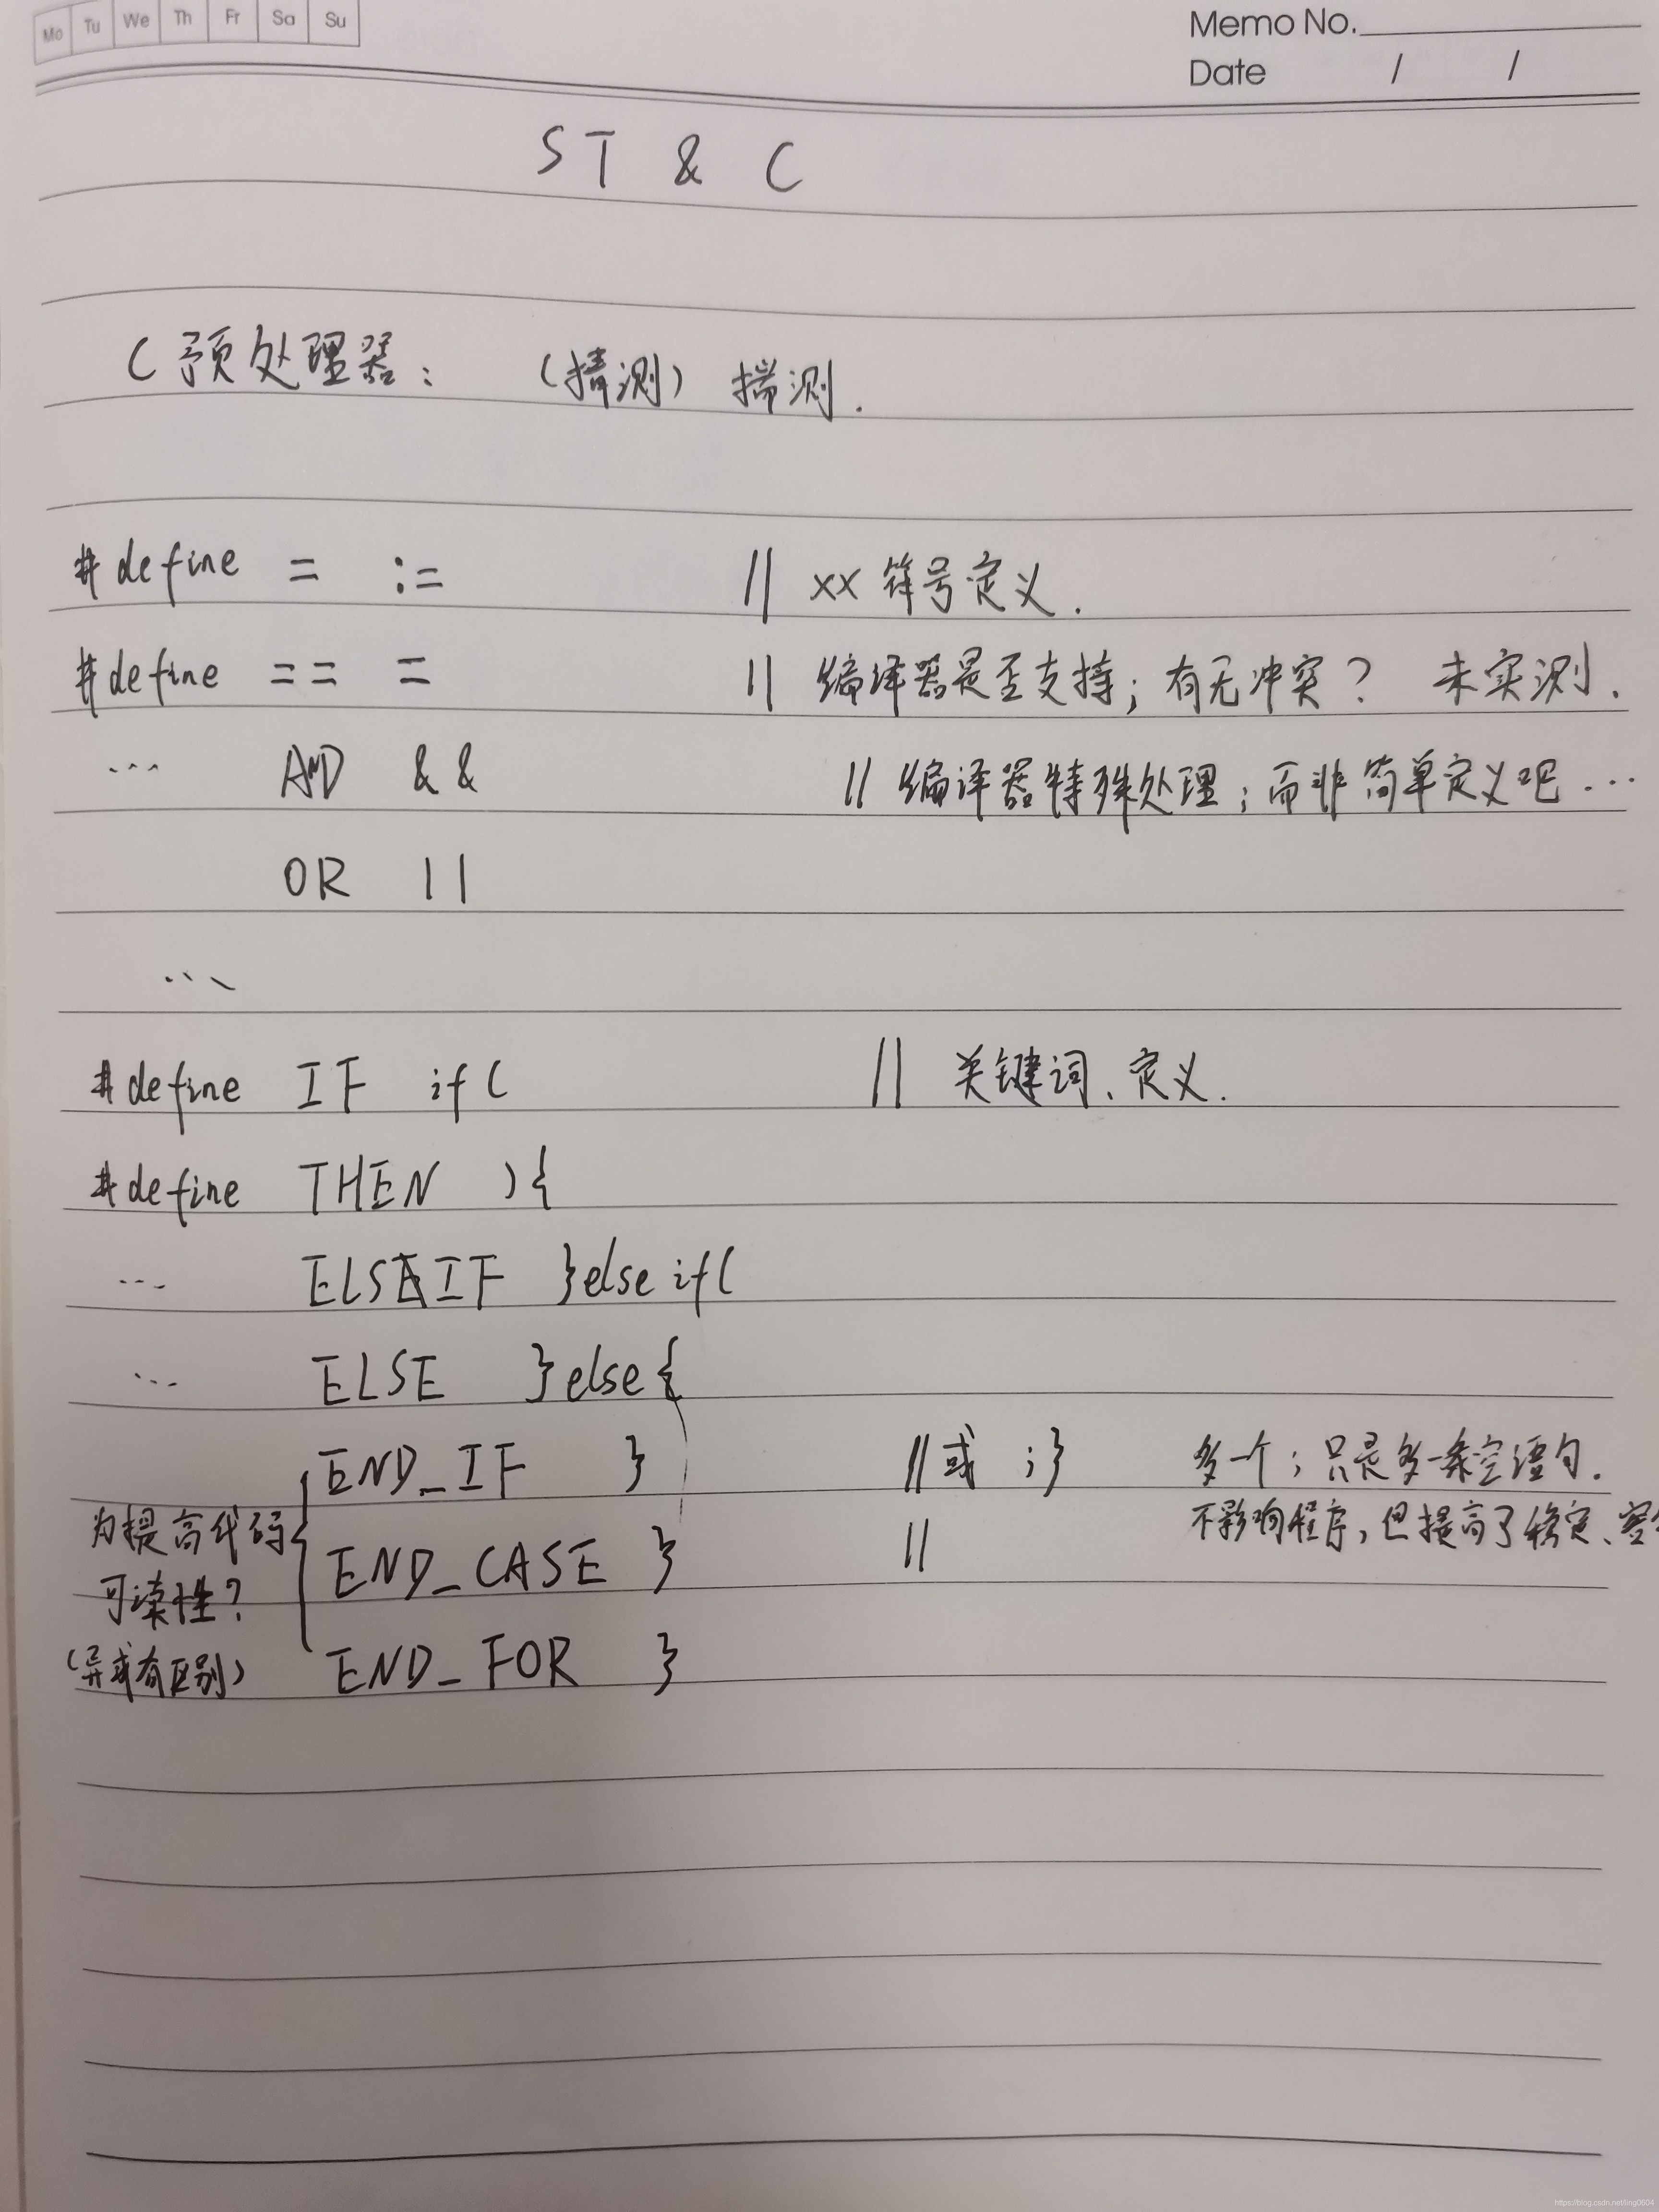 Mo Tu We Th Fr Sa Su
Memo No.
Date / /
ST & C
C预处理器: (猜测) 揣测.
#define = := // xx符号定义.
#define == = // 编译器是否支持;有无冲突? 未实测.
... AND && // 编译器特殊处理;而非简单定义吧...
OR ||
...
#define IF if( // 关键词、定义.
#define THEN ){
... ELSEIF }else if(
... ELSE }else{
END_IF } //或 ;} 多一个;只是多一条空语句.
为提高代码 不影响程序,但提高了稳定、
END_CASE } //
可读性?
(异或有区别) END_FOR }
https://blog.csdn.net/ling0604